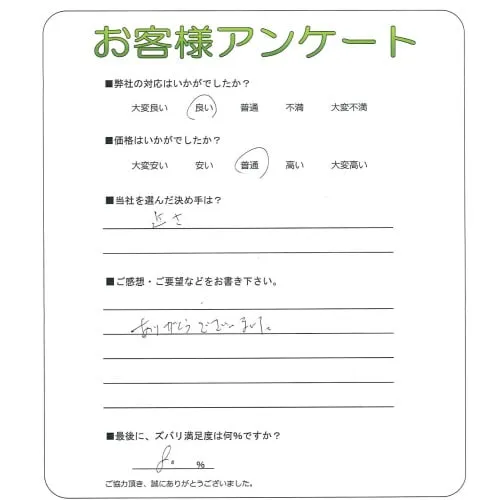 お客様アンケート
■弊社の対応はいかがでしたか?
大変良い 良い 普通 不満 大変不満
■価格はいかがでしたか?
大変安い 安い 普通 高い 大変高い
■当社を選んだ決め手は?
近さ
■ご感想・ご要望などをお書き下さい。
ありがとうございました。
■最後に、ズバリ満足度は何%ですか?
80 %
ご協力頂き、誠にありがとうございました。